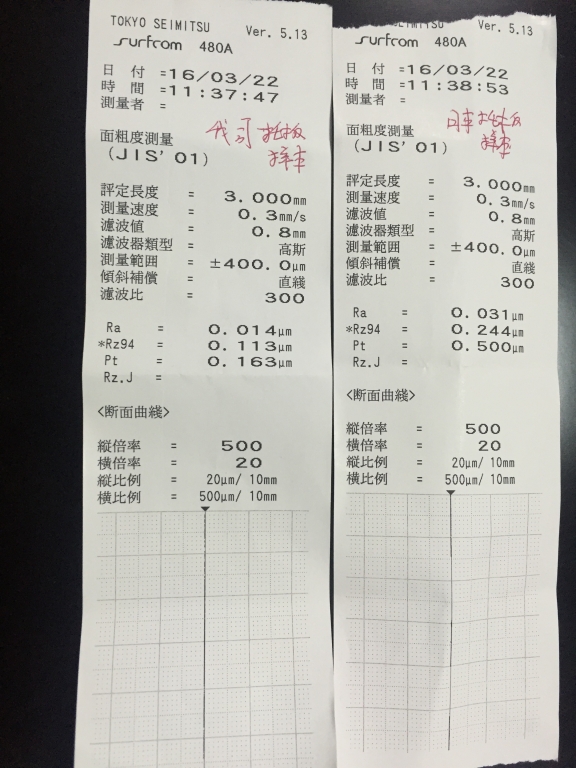 TOKYO SEIMITSU Ver. 5.13
surfcom 480A
日 付 =16/03/22
時 間 =11:37:47
測量者 =
面粗度測量
(JIS'01)
評定長度 = 3.000mm
測量速度 = 0.3mm/s
濾波値 = 0.8mm
濾波器類型 = 高斯
測量範囲 = ±400.0μm
傾斜補償 = 直綫
濾波比 = 300
Ra = 0.014μm
*Rz94 = 0.113μm
Pt = 0.163μm
Rz.J =
<断面曲綫>
縦倍率 = 500
横倍率 = 20
縦比例 = 20μm/ 10mm
横比例 = 500μm/ 10mm
SEIMITSU Ver. 5.13
surfcom 480A
日 付 =16/03/22
時 間 =11:38:53
測量者 =
面粗度測量
(JIS'01)
評定長度 = 3.000mm
測量速度 = 0.3mm/s
濾波値 = 0.8mm
濾波器類型 = 高斯
測量範囲 = ±400.0μm
傾斜補償 = 直綫
濾波比 = 300
Ra = 0.031μm
*Rz94 = 0.244μm
Pt = 0.500μm
Rz.J =
<断面曲綫>
縦倍率 = 500
横倍率 = 20
縦比例 = 20μm/ 10mm
横比例 = 500μm/ 10mm